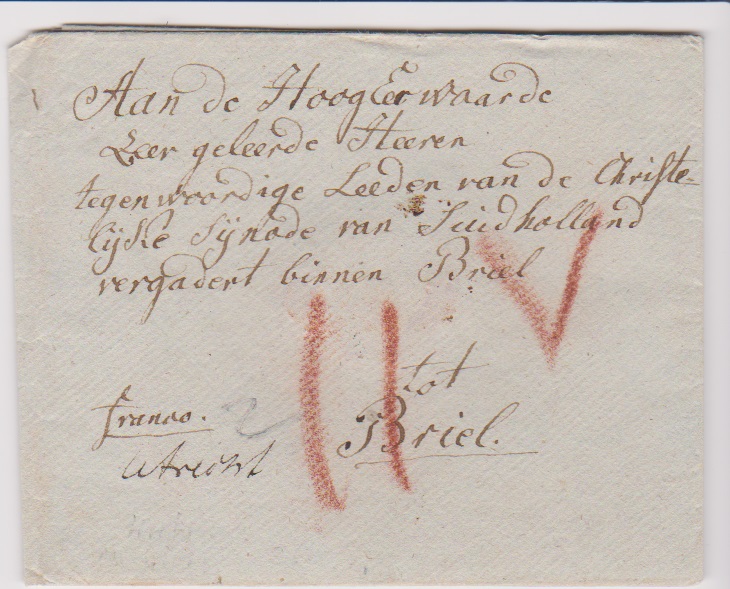 Aan de HoogEerwaarde
Zeer geleerde Heeren
tegenwoordige Leeden van de Christe=
lijke Sijnode van Suidholland
vergadert binnen Briel
V
II
tot
franco.
2
Briel.
Utrecht